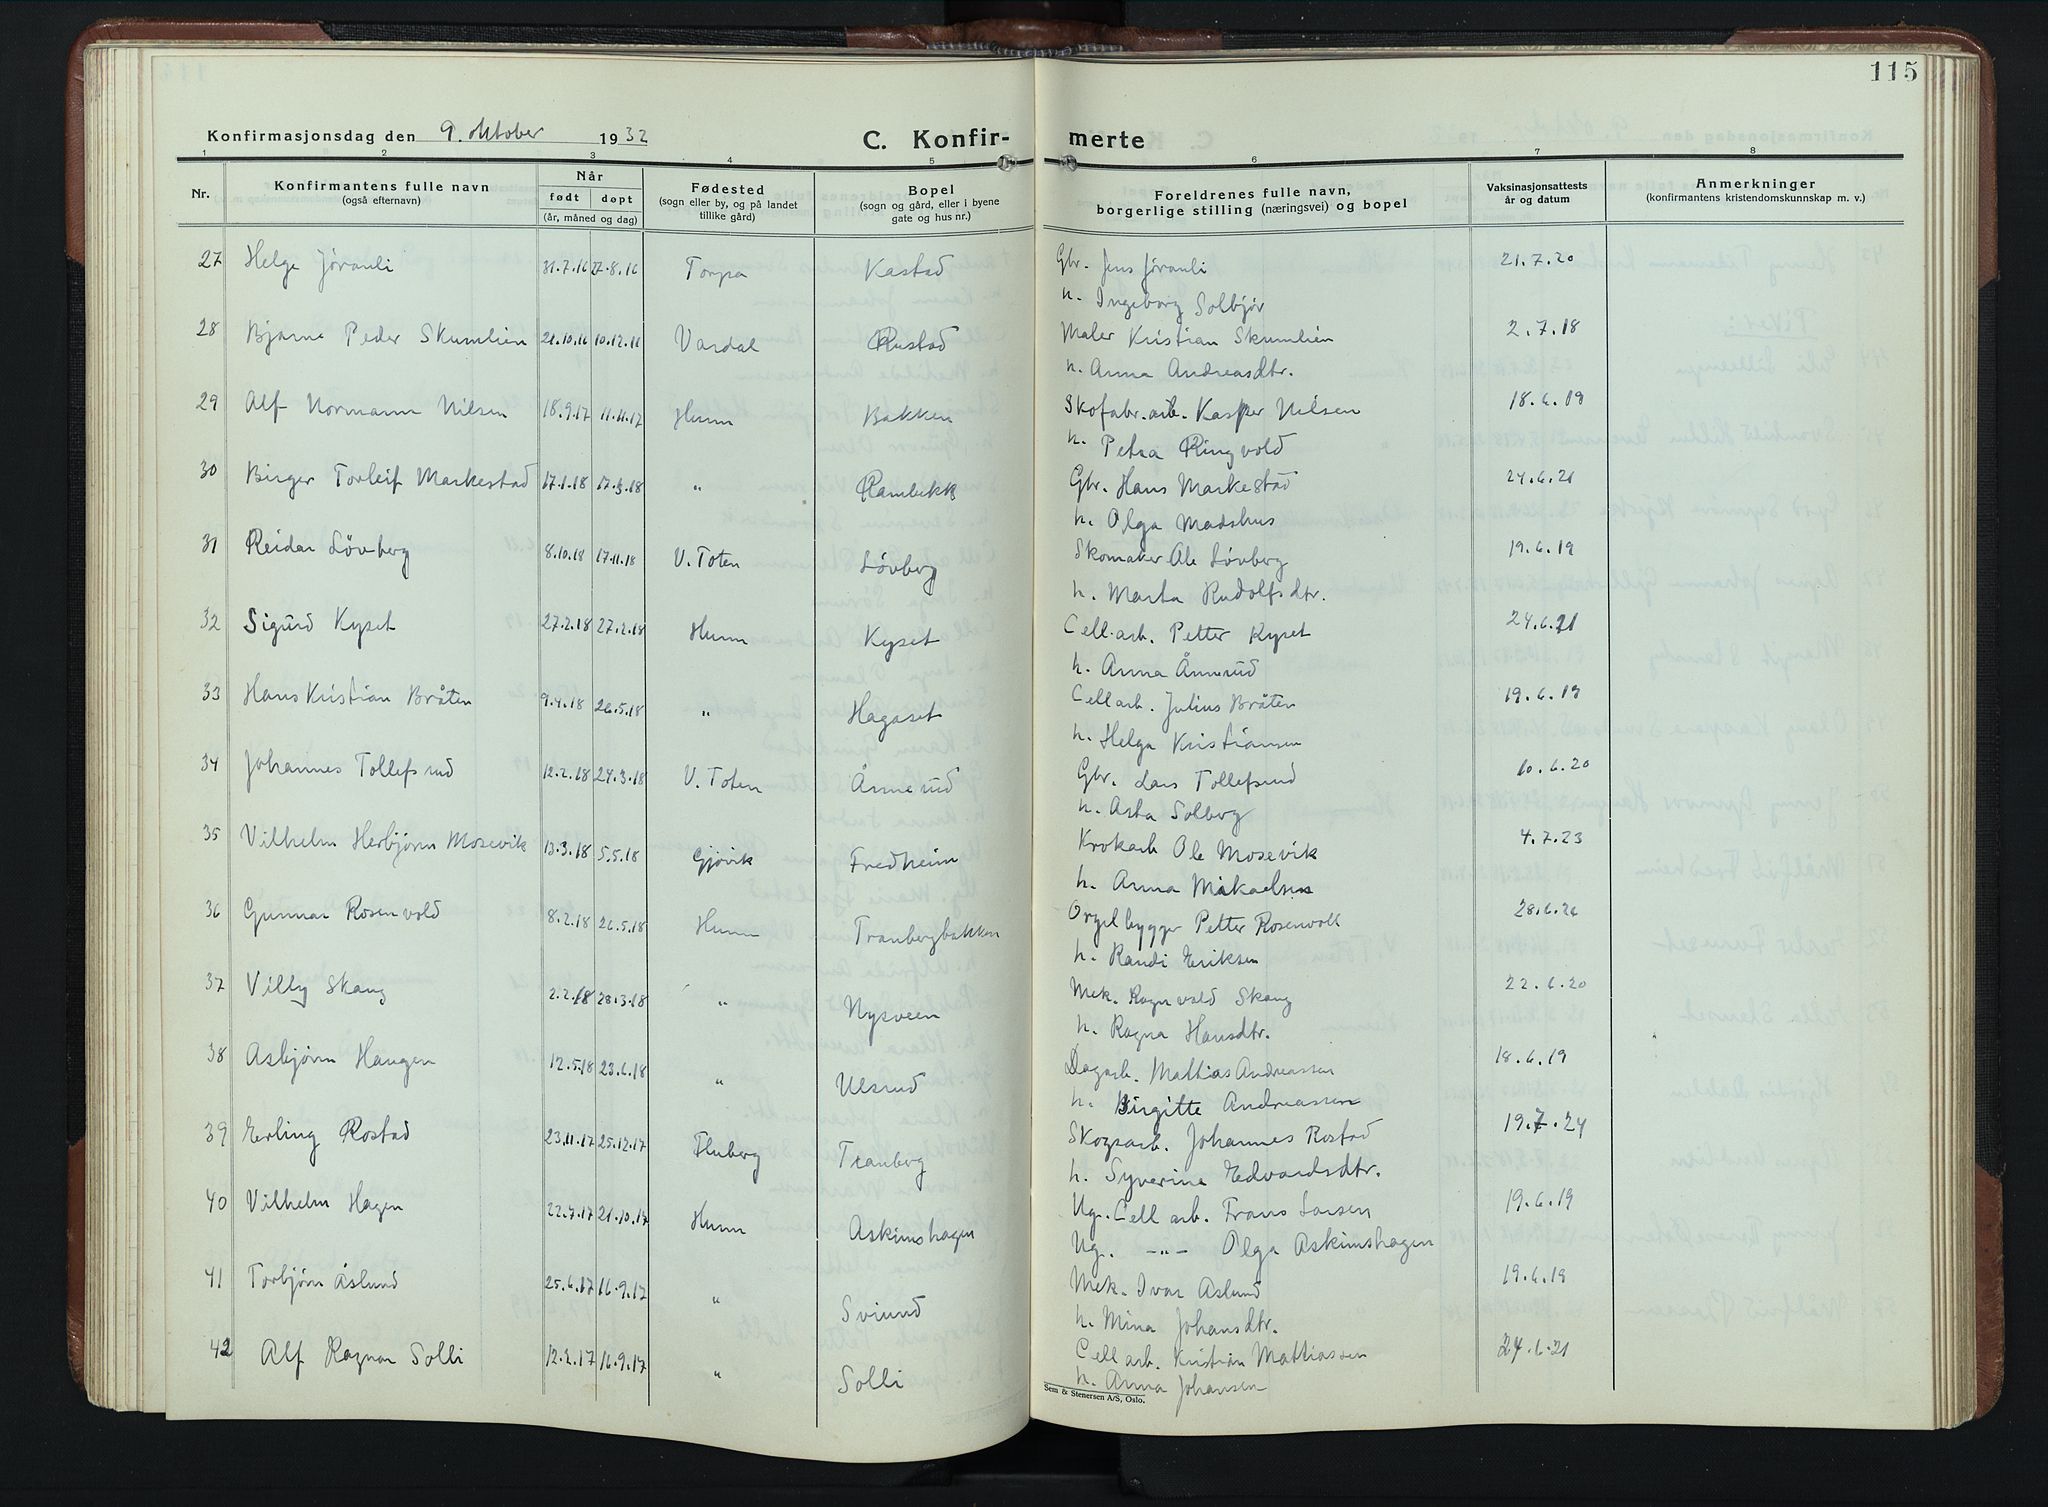 115
Konfirmasjonsdag den 9. oktober 1932 C. Konfir- merte
1 2 3 4 5 6 7 8
Nr. Konfirmantens fulle navn (også efternavn) Når født døpt (år, måned og dag) Fødested (sogn eller by, og på landet tillike gård) Bopel (sogn og gård, eller i byene gate og hus nr.) Foreldrenes fulle navn, borgerlige stilling (næringsvei) og bopel Vaksinasjonsattests år og datum Anmerkninger (konfirmantens kristendomskunnskap m. v.)
27 Helge Jøranli 31.7.16 27.8.16 Torpa Kastad Gbr. Jens Jøranli 21.7.20
h. Ingeborg Solbjør
28 Bjarne Peder Skumlien 21.10.16 10.12.16 Vardal Rustad Maler Kristian Skumlien 2.7.18
h. Anna Andreasdtr.
29 Alf Normann Nilsen 18.9.17 11.11.17 Hunn Bakken Skofabr.arb. Kasper Nilsen 18.6.19
h. Petra Ringvold
30 Birger Torleif Markestad 17.1.18 17.3.18 " Rambekk Gbr. Hans Markestad 24.6.21
h. Olga Madshus
31 Reidar Løvberg 8.10.18 17.11.18 V. Toten Løvberg Skomaker Ole Løvberg 19.6.19
h. Marta Rudolfsdtr.
32 Sigurd Kyset 27.2.18 27.2.18 Hunn Kyset Cell.arb. Petter Kyset 24.6.21
h. Anna Ånnerud
33 Hans Kristian Bråten 9.4.18 26.5.18 " Hagaset Cellarb. Julius Bråten 19.6.19
h. Helga Kristiansen
34 Johannes Tollefsrud 12.2.18 24.3.18 V. Toten Ånnerud Gbr. Lars Tollefsrud 10.6.20
h. Asta Solberg
35 Vilhelm Herbjørn Mosevik 13.3.18 5.5.18 Gjøvik Fredheim Krokarb Ole Mosevik 4.7.23
h. Anna Mikaelsen
36 Gunnar Rosenvold 8.2.18 26.5.18 Hunn Tranbergbakken Orgelbygger Petter Rosenvold 28.6.26
h. Randi Eriksen
37 Villy Skang 2.2.18 28.3.18 " Nysveen Mek. Ragnvald Skang 22.6.20
h. Ragna Hansdtr.
38 Asbjørn Haugen 12.5.18 23.6.18 " Ulsrud Dagarb. Mathias Andreassen 18.6.19
h. Birgitte Andreassen
39 Erling Rostad 23.11.17 25.12.17 Fluberg Tranberg Skogsarb. Johannes Rostad 19.7.24
h. Syverine Edvardsdtr.
40 Vilhelm Hagen 22.7.17 21.10.17 Hunn Askimshagen Ug. Cell arb. Frans Larsen 19.6.19
Ug. —"— Olga Askimshagen
41 Torbjørn Åslund 25.6.17 16.9.17 " Sviund Mek. Ivar Aslund 19.6.19
h. Mina Johansdtr.
42 Alf Ragnar Solli 12.2.17 16.9.17 " Solli Cellarb. Kristian Mathiassen 24.6.21
h. Anna Johansen
Sem & Stenersen A/S, Oslo.